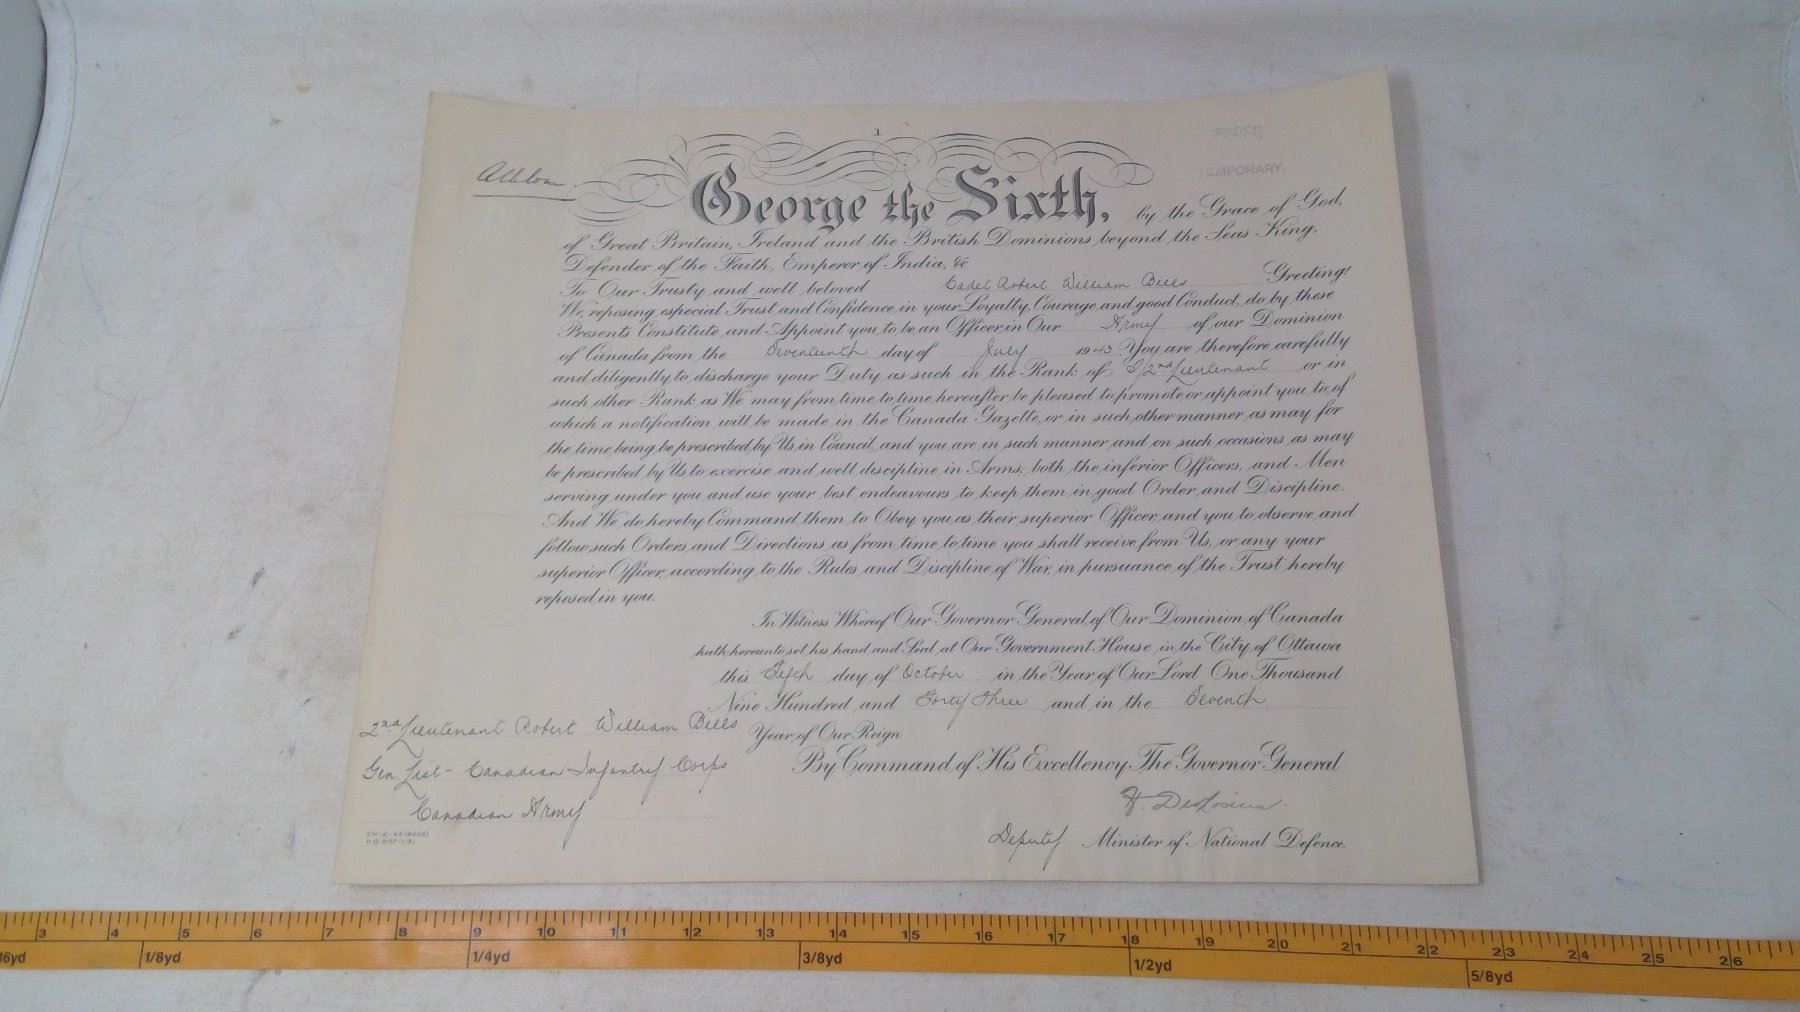 TEMPORARY.
George the Sixth, by the Grace of God,
of Great Britain, Ireland and the British Dominions beyond the Seas King,
Defender of the Faith, Emperor of India, &c
To Our Trusty and well beloved Cadet Robert William Bells Greeting:
We, reposing especial Trust and Confidence in your Loyalty, Courage, and good Conduct, do by these
Presents Constitute and Appoint you to be an Officer in Our Army of our Dominion
of Canada from the Seventeenth day of July 1943 You are therefore carefully
and diligently to discharge your Duty as such in the Rank of 2nd Lieutenant or in
such other Rank as We may from time to time hereafter be pleased to promote or appoint you to, of
which a notification will be made in the Canada Gazette, or in such other manner as may for
the time being be prescribed by Us in Council, and you are in such manner and on such occasions as may
be prescribed by Us to exercise and well discipline in Arms, both the inferior Officers, and Men
serving under you and use your best endeavours to keep them in good Order and Discipline.
And We do hereby Command them to Obey you as their superior Officer, and you to observe and
follow such Orders and Directions as from time to time you shall receive from Us, or any your
superior Officer, according to the Rules and Discipline of War, in pursuance of the Trust hereby
reposed in you.
In Witness Whereof Our Governor General of Our Dominion of Canada
hath hereunto set his hand and Seal at Our Government House in the City of Ottawa
this Fifth day of October in the Year of Our Lord One Thousand
Nine Hundred and Forty Three and in the Seventh
Year of Our Reign
By Command of His Excellency The Governor General
Deputy Minister of National Defence.
2nd Lieutenant Robert William Bells
Gen. List - Canadian Infantry Corps
Canadian Army
3 4 5 6 7 8 9 10 11 12 13 14 15 16 17 18 19 20 21 22 23 24 25 26
16yd 1/8yd 1/4yd 3/8yd 1/2yd 5/8yd